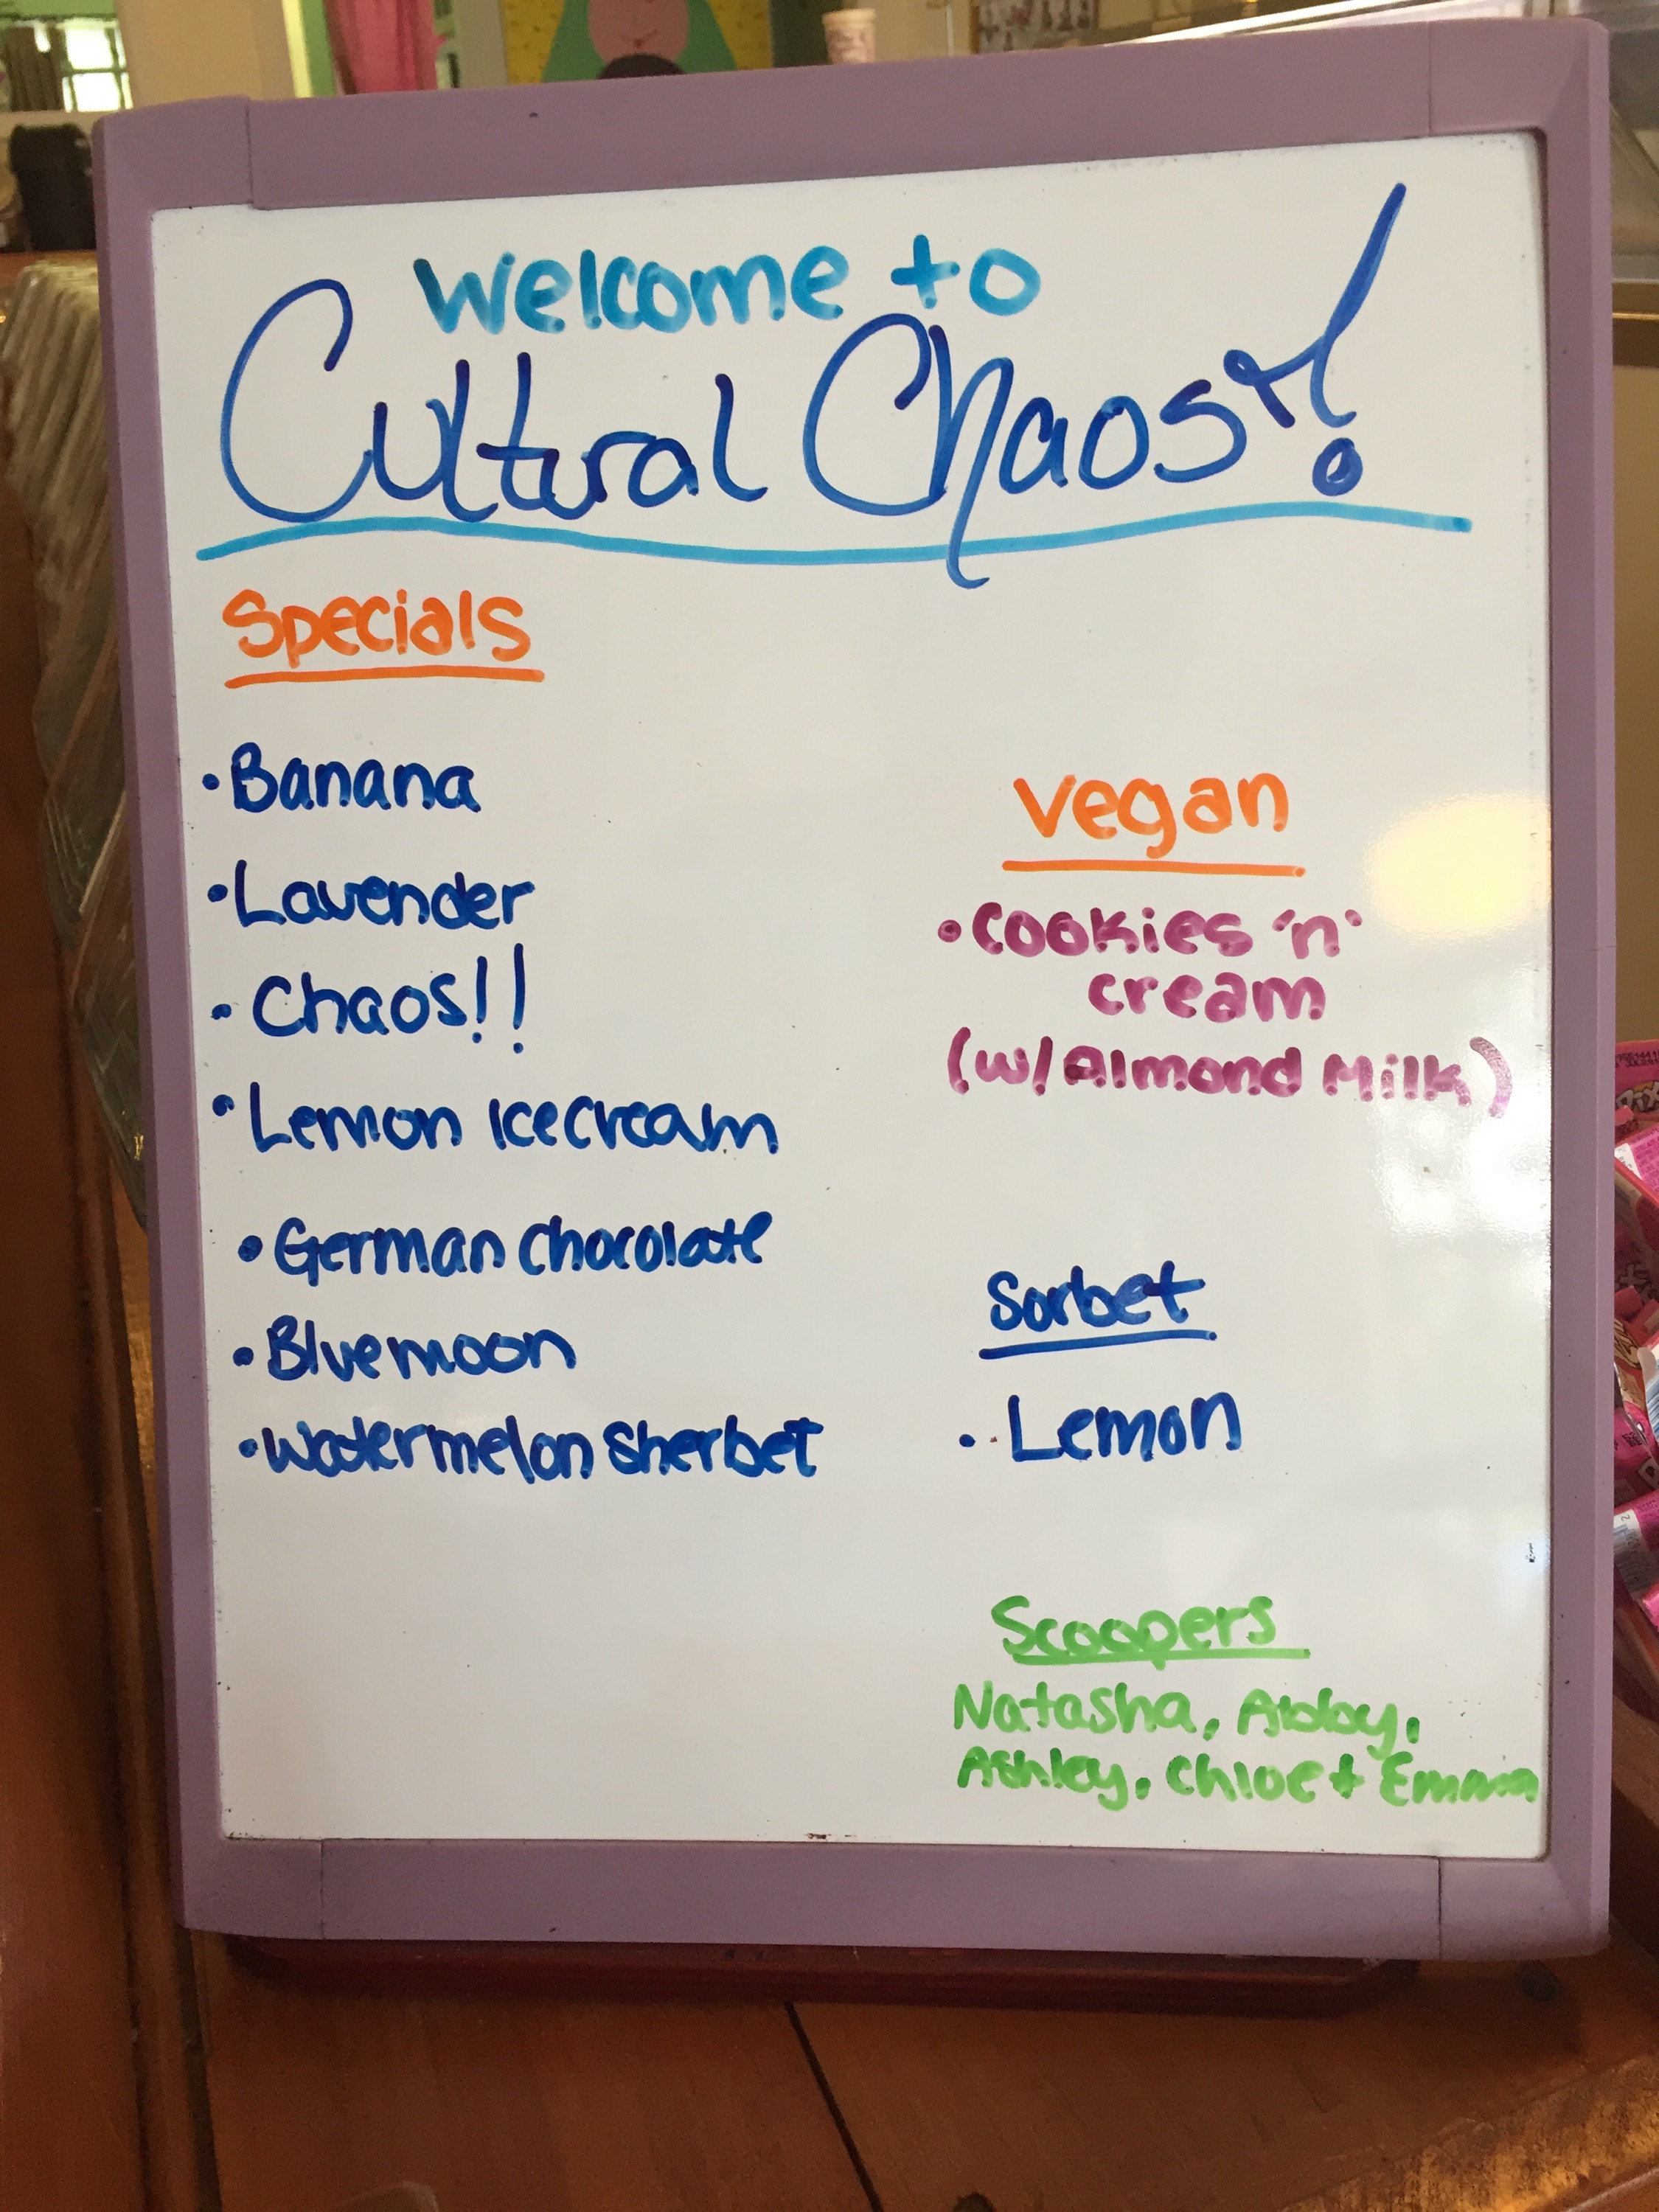 Welcome to
Cultural Chaos!
Specials
• Banana
• Lavender
• Chaos!!
• Lemon icecream
• German chocolate
• Bluemoon
• Watermelon Sherbet
Vegan
• Cookies 'n'
cream
(w/ Almond Milk)
Sorbet
• Lemon
Scoopers
Natasha, Abby,
Ashley, Chloe + Emma